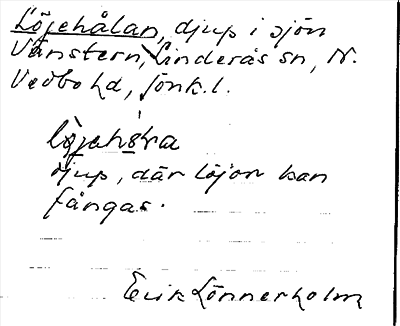 Löjehålan, djup i sjön
Vänstern, Linderås sn, N.
Vedbo hd, Jönk. l.
djup, där löjon kan
fångas.
Erik Lönnerholm